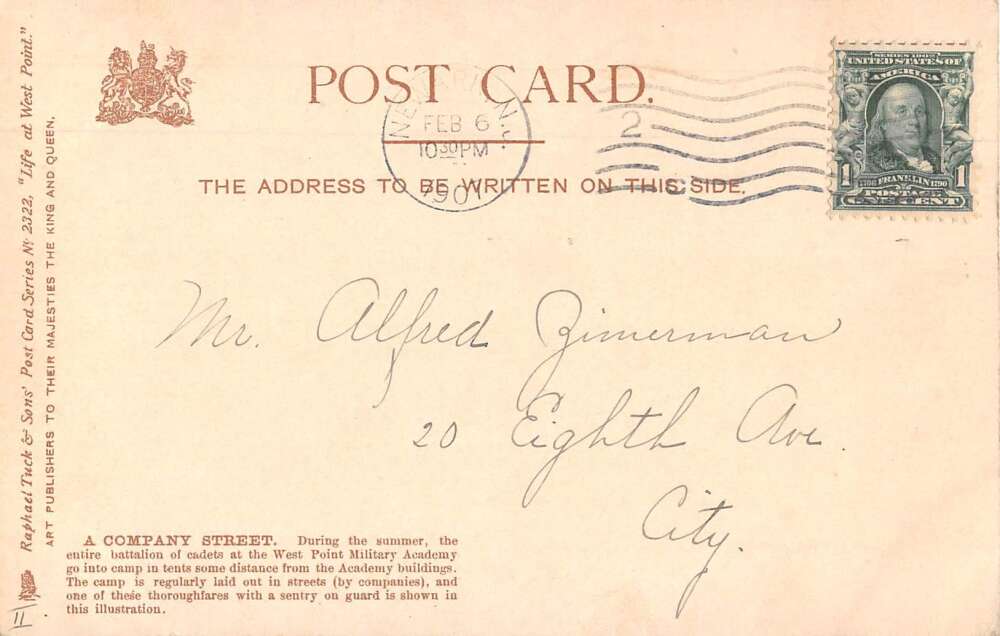 Raphael Tuck & Sons' Post Card Series No 2322, "Life at West Point."
ART PUBLISHERS TO THEIR MAJESTIES THE KING AND QUEEN.
POST CARD.
FEB 6
10 30 PM
190
2
THE ADDRESS TO BE WRITTEN ON THIS SIDE.
SERIES 1902
UNITED STATES OF
AMERICA
1706 FRANKLIN 1790
1 POSTAGE 1
ONE CENT
Mr. Alfred Zimerman
20 Eighth Ave.
City.
A COMPANY STREET. During the summer, the
entire battalion of cadets at the West Point Military Academy
go into camp in tents some distance from the Academy buildings.
The camp is regularly laid out in streets (by companies), and
one of these thoroughfares with a sentry on guard is shown in
this illustration.
11